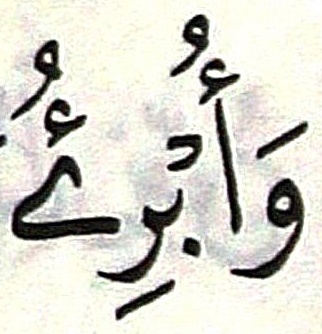 وَأُبْرِئُ